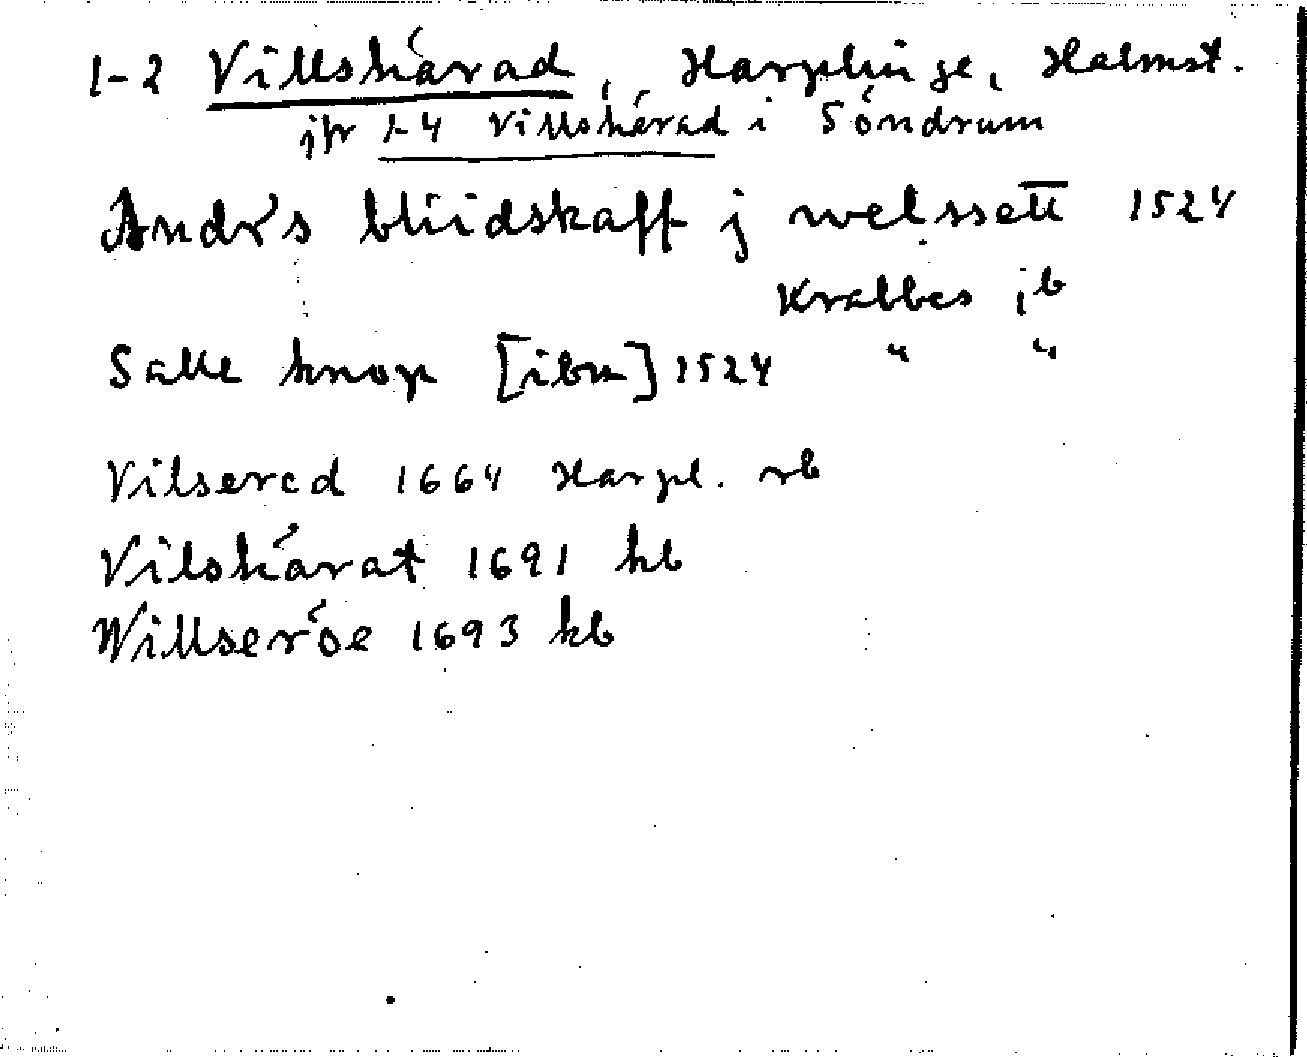 1-2 Villshärad, Harplinge, Halmst.
jfr 1-4 Villshärad i Söndrum
Andr's bliidskaff j welssett 1524
Krabbes jb
Salle knop [ibm] 1524 " "
Vilsered 1664 Harpl. rb
Vilshärat 1691 kb
Willseröe 1693 kb